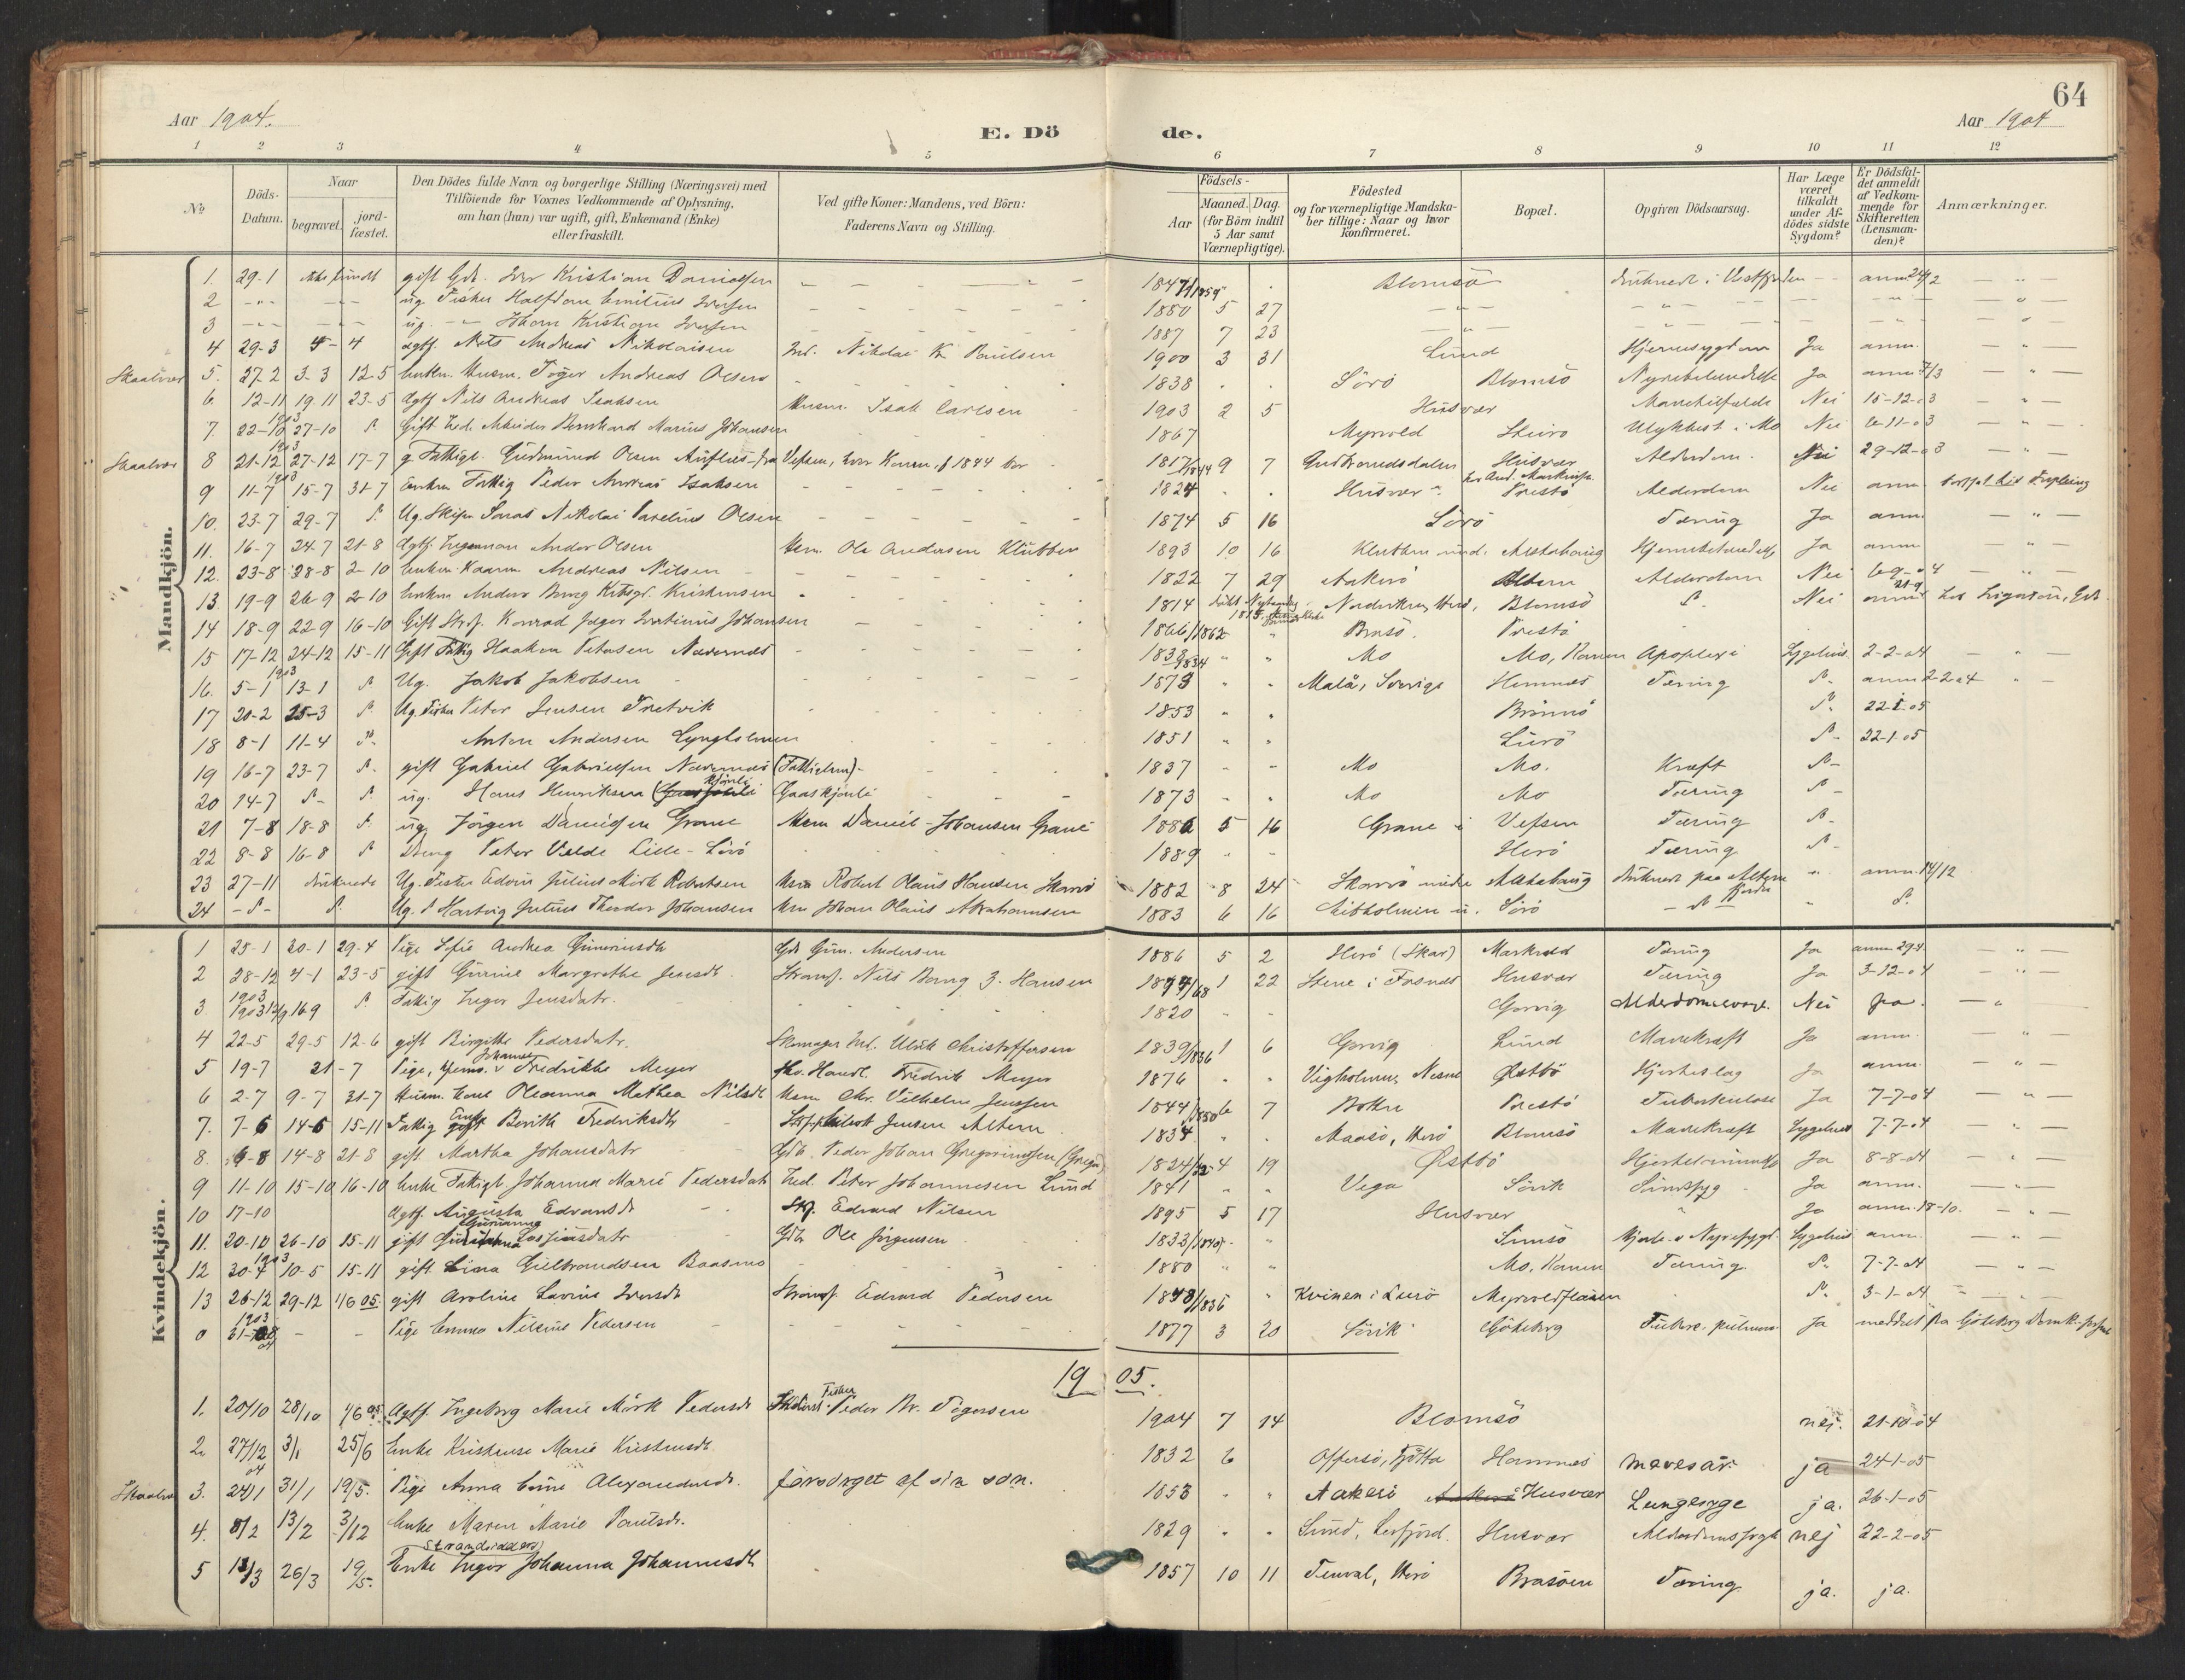 64
Aar 1904.
E. Dö de.
Aar 1904
1 2 3 4 5 6 7 8 9 10 11 12
№
Döds-Datum.
Naar
begravet.
jord-fæstet.
Den Dödes fulde Navn og borgerlige Stilling (Næringsvei) med
Tilföiende for Voxnes Vedkommende af Oplysning,
om han (hun) var ugift, gift, Enkemand (Enke)
eller fraskilt.
Ved gifte Koner: Mandens, ved Börn:
Faderens Navn og Stilling.
Födsels-
Aar
Maaned. Dag.
(for Börn indtil
5 Aar samt
Værnepligtige).
Födested
og for værnepligtige Mandska-
ber tillige: Naar og hvor
konfirmeret.
Bopæl.
Opgiven Dödsaarsag.
Har Læge
været
tilkaldt
under Af-
dödes sidste
Sygdom?
Er Dödsfal-
det anmeldt
af Vedkom-
mende for
Skifteretten
(Lensman-
den)?
Anmærkninger.
Mandkjön.
1. 29-1 ikke fundet gift Gdb. Iver Kristian Danielsen 1847 Blomsö druknede i Vestfjorden anm. 24/2
2 ug. Fisker Halfdan Emilius Iversen 1880 5 27
3 ug. Johan Kristian Iversen 1887 7 23
4 29-3 4-4 agtf. Nils Andreas Nikolaisen Ind. Nikolai K Paulsen 1900 3 31 Lund Hjernesygdom Ja anm.
Skaalvær 5. 27-2 3-3 12-5 Enkm. Husm. Töger Andreas Olsen 1838 Sörö Blomsö Nyrebetændelse Ja anm 7/3
6. 12-11 19-11 23-5 Agtf. Nils Andreas Isaksen Husm. Isak Carlsen 1903 2 5 Husvær Mavetilfælde Nei 15-12-03
1903
7. 22-10 27-10 Gift Led. Arbeider Bernhard Marius Johansen 1867 Myrvold Ulykkest i Mo Nei 6-11-03
1903
Skaalvær 8 21-12 27-12 17-7 g. Fattigl. Gudmund Olsen fra Vefsen, hvor Konen, f 1844 bor 1817/1844 9 7 Gudbrandsdalen Husvær Alderdom. Nei 29-12-03
1903
9 11-7 15-7 31-7 Enkm Fattig Peder Andreas Isaksen 1824 Husvær Prestö Alderdom Nei anm
10. 23-7 29-7 Ug. Nikolai Parelius Olsen 1874 5 16 Sörö Tæring Ja anm.
11. 16-7 24-7 21-8 Agtf. Ingemann Ander Olsen Husm. Ole Andersen Klubben 1893 10 16 Klubben und. Alstahaug Hjernebetændelse Ja anm
12. 23-8 28-8 2-10 Enkm. Kaarm Andreas Nilsen 1822 7 29 Aakerö Altern Alderdom Nei 6-9-04
13 19-9 26-9 2-10 Enkm Anders Bang Kristensen 1814 Herö, Blomsö Nei anm 21-9
14 18-9 22-9 16-10 Gift Strsf. Konrad Jæger Johansen 1866/1862 Brasö. Prestö
15 17-12 24-12 15-11 Gift Fattig Haakon Petersen Nævernes 1838/1834 Mo Mo, Ranen Apoplexi Sygehus 2-2-04
1903
16. 5-1 13-1 Ug. Jakob Jakobsen 1873 Malå, Sverige Hemnes Tæring anm 2-2-04
17 20-2 25-3 Ug. Fisker Peter Jensen Tretvik 1853 Brönnö 22-1-05
18 8-1 11-4 Anton Andersen Lyngholmen 1851 Lurö 22-1-05
19 16-7 23-7 gift Gabriel Gabrielsen Nævernes (Fattiglem) 1837 Mo Mo. Kræft
20 14-7 ug. Hans Henriksen Gaaskjönli 1873 Mo Mo Tæring
21 7-8 18-8 ug. Jörgen Danielsen Grane Husm Daniel Johansen Grane 1886 5 16 Grane i Vefsen Tæring
22 8-8 16-8 Dreng Peter Valde Lille-Lövö 1889 Herö Tæring
23 27-11 druknede Ug. Fisker Edvin Julius Mörk Robertsen Husm Robert Olaus Hansen Skarvö 1882 8 24 Skarvö under Alstahaug druknet paa Altern fjorden anm. 14/12
24 Ug. Hartvig Julius Theodor Johansen Husm Johan Olaus Abrahamsen 1883 6 16 u. Sörö
Kvindekjön.
1 25-1 30-1 29-4 Pige Sofie Andrea Guneriusdt Gdb Gun. Andersen 1886 5 2 Herö (Skar) Tæring Ja anm 29-4
2 28-12 4-1 23-5 gift Gurine Margrethe Jensdt. Strandf. Nils Bang J. Hansen 1 22 Stene i Fosnes Husvær Tæring Ja 3-12-04
1903
3. 1903 13/9 16-9 Fattig Inger Jensdatr. 1820 Gorvig Alderdomssvag. Nei Ja.
4 22-5 29-5 12-6 gift Birgithe Pedersdatr. Skomager Ind. Ulrik Christoffersen 1839/1836 1 6 Gorvig Lund Mavekræft Ja anm.
5 19-7 21-7 Pige, Johanne Fredrikke Meyer fhv. Handl. Fredrik Meyer 1876 Vigholmen, Nesne Østbö Hjerteslag Ja anm.
6 2-7 9-7 31-7 Husm. Kone Oleanna Mathea Nilsdt Husm Chr. Vilhelm Jenssen 1844/1850 6 7 Botne Prestö Tuberkulose Ja 7-7-04
7. 7-6 14-6 15-11 Fattig Enke Berith Fredriksdt Jensen Altern 1834 Maasö, Herö Blomsö Mavekræft Sygehus 7-7-04
8. 6-8 14-8 21-8 gift Martha Johansdatr Gdb. Peder Johan Gregoriussen 1824/22 4 19 Østbö Ja 8-8-04
9 11-10 15-10 16-10 Enke Fattigl. Johanna Marie Pedersdatr Led. Peter Johannesen Lund 1841 Vega Sörvik Sindssyg Ja anm.
10 17-10 Agtf. Augusta Edvardsdt Strf. Edvard Nilsen 1895 5 17 Husvær Ja anm. 18-10.
11. 20-10 26-10 15-11 gift Gurianna Gdb Ole Jörgensen 1833/1840 Sunsö Hjerte- o Nyresygd. Sygehus anm.
1903
12 30-4 10-5 15-11 gift Lina Gulbrandsen Baasmo 1880 Mo, Ranen Tæring 7-7-04
13 26-12 29-12 1/6 05. gift Aroline Lavine Iversdt Strandf. Edvard Pedersen 1843/1836 Kvinen i Lurö Myrvoldflaten 3-1-04
1903
0 Pige Emma Nilsine Pedersen 1877 3 20 Sörvik Göteborg Tuberc. pulmon. Ja meddelt fra Göteborg
1905.
1. 20/10 28/10 1/6 05 Agtf. Ingeborg Marie Mörk Pedersdt Fisker Peder Br. Tögersen 1904 7 14 Blomsö nej. 21-10-04
2. 27/12 04 3/1 25/6 Enke Kristense Marie Kristensdt. 1832 6 Offersö, Tjötta Hamnes mavesår. ja 24-1-05
Skaalvær 3. 24/1 31/1 19/5. Pige Anna Eline Alexandersd. forsörget af sin sön. 1853 Aakerö Husvær Lungesyge ja. 26-1-05
4. 8/2 13/2 3/12 Enke Maren Marie Paulsdr. 1829 Sund, Leirfjord. Husvær Alderdomssvag nej 22-2-05
Strandsidder
5 13/3 26/3 19/5. Enke Inger Johanna Johannesdt 1857 10 11 Tenval, Herö Brasöen Tæring ja. ja.